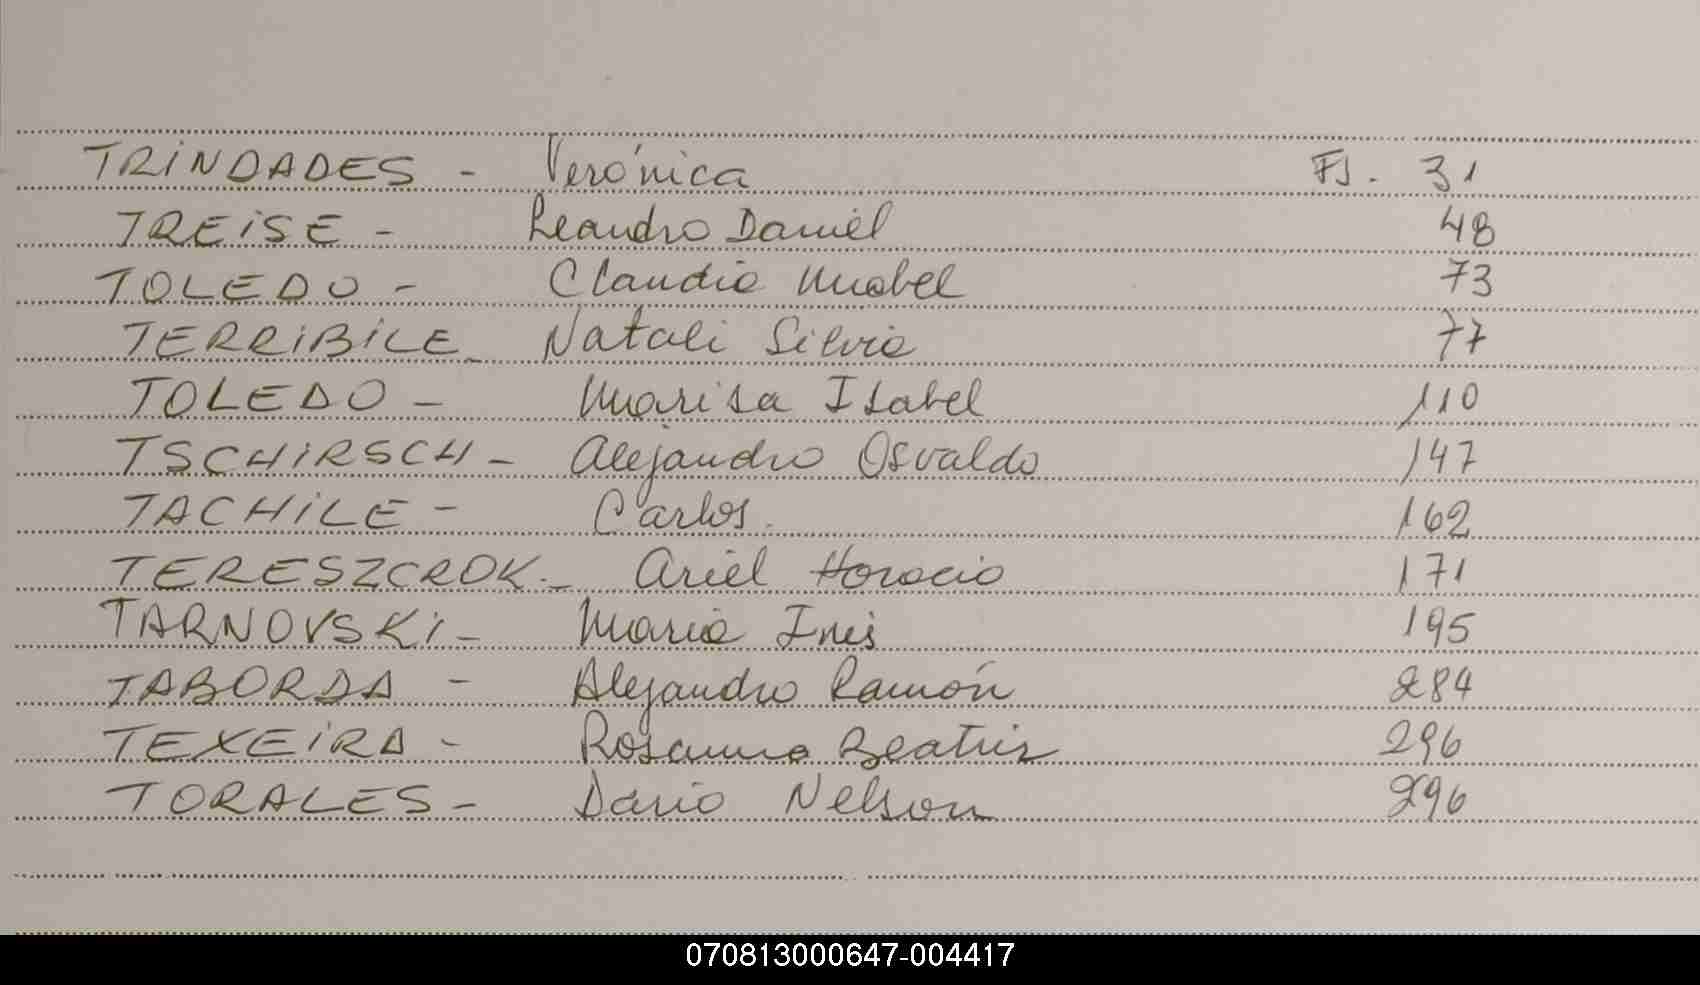 TRINDADES - Verónica Fs. 31
TREISE - Leandro Daniel 48
TOLEDO - Claudia Mabel 73
TERRIBILE - Natali Silvia 77
TOLEDO - Marisa Isabel 110
TSCHIRSCH - Alejandro Osvaldo 147
TACHILE - Carlos. 162
TERESZCROK.- Ariel Horacio 171
TARNOVSKI - Maria Ines 195
TABORDA - Alejandro Ramón 284
TEXEIRA - Rosanna Beatriz 296
TORALES - Dario Nelson 296
070813000647-004417